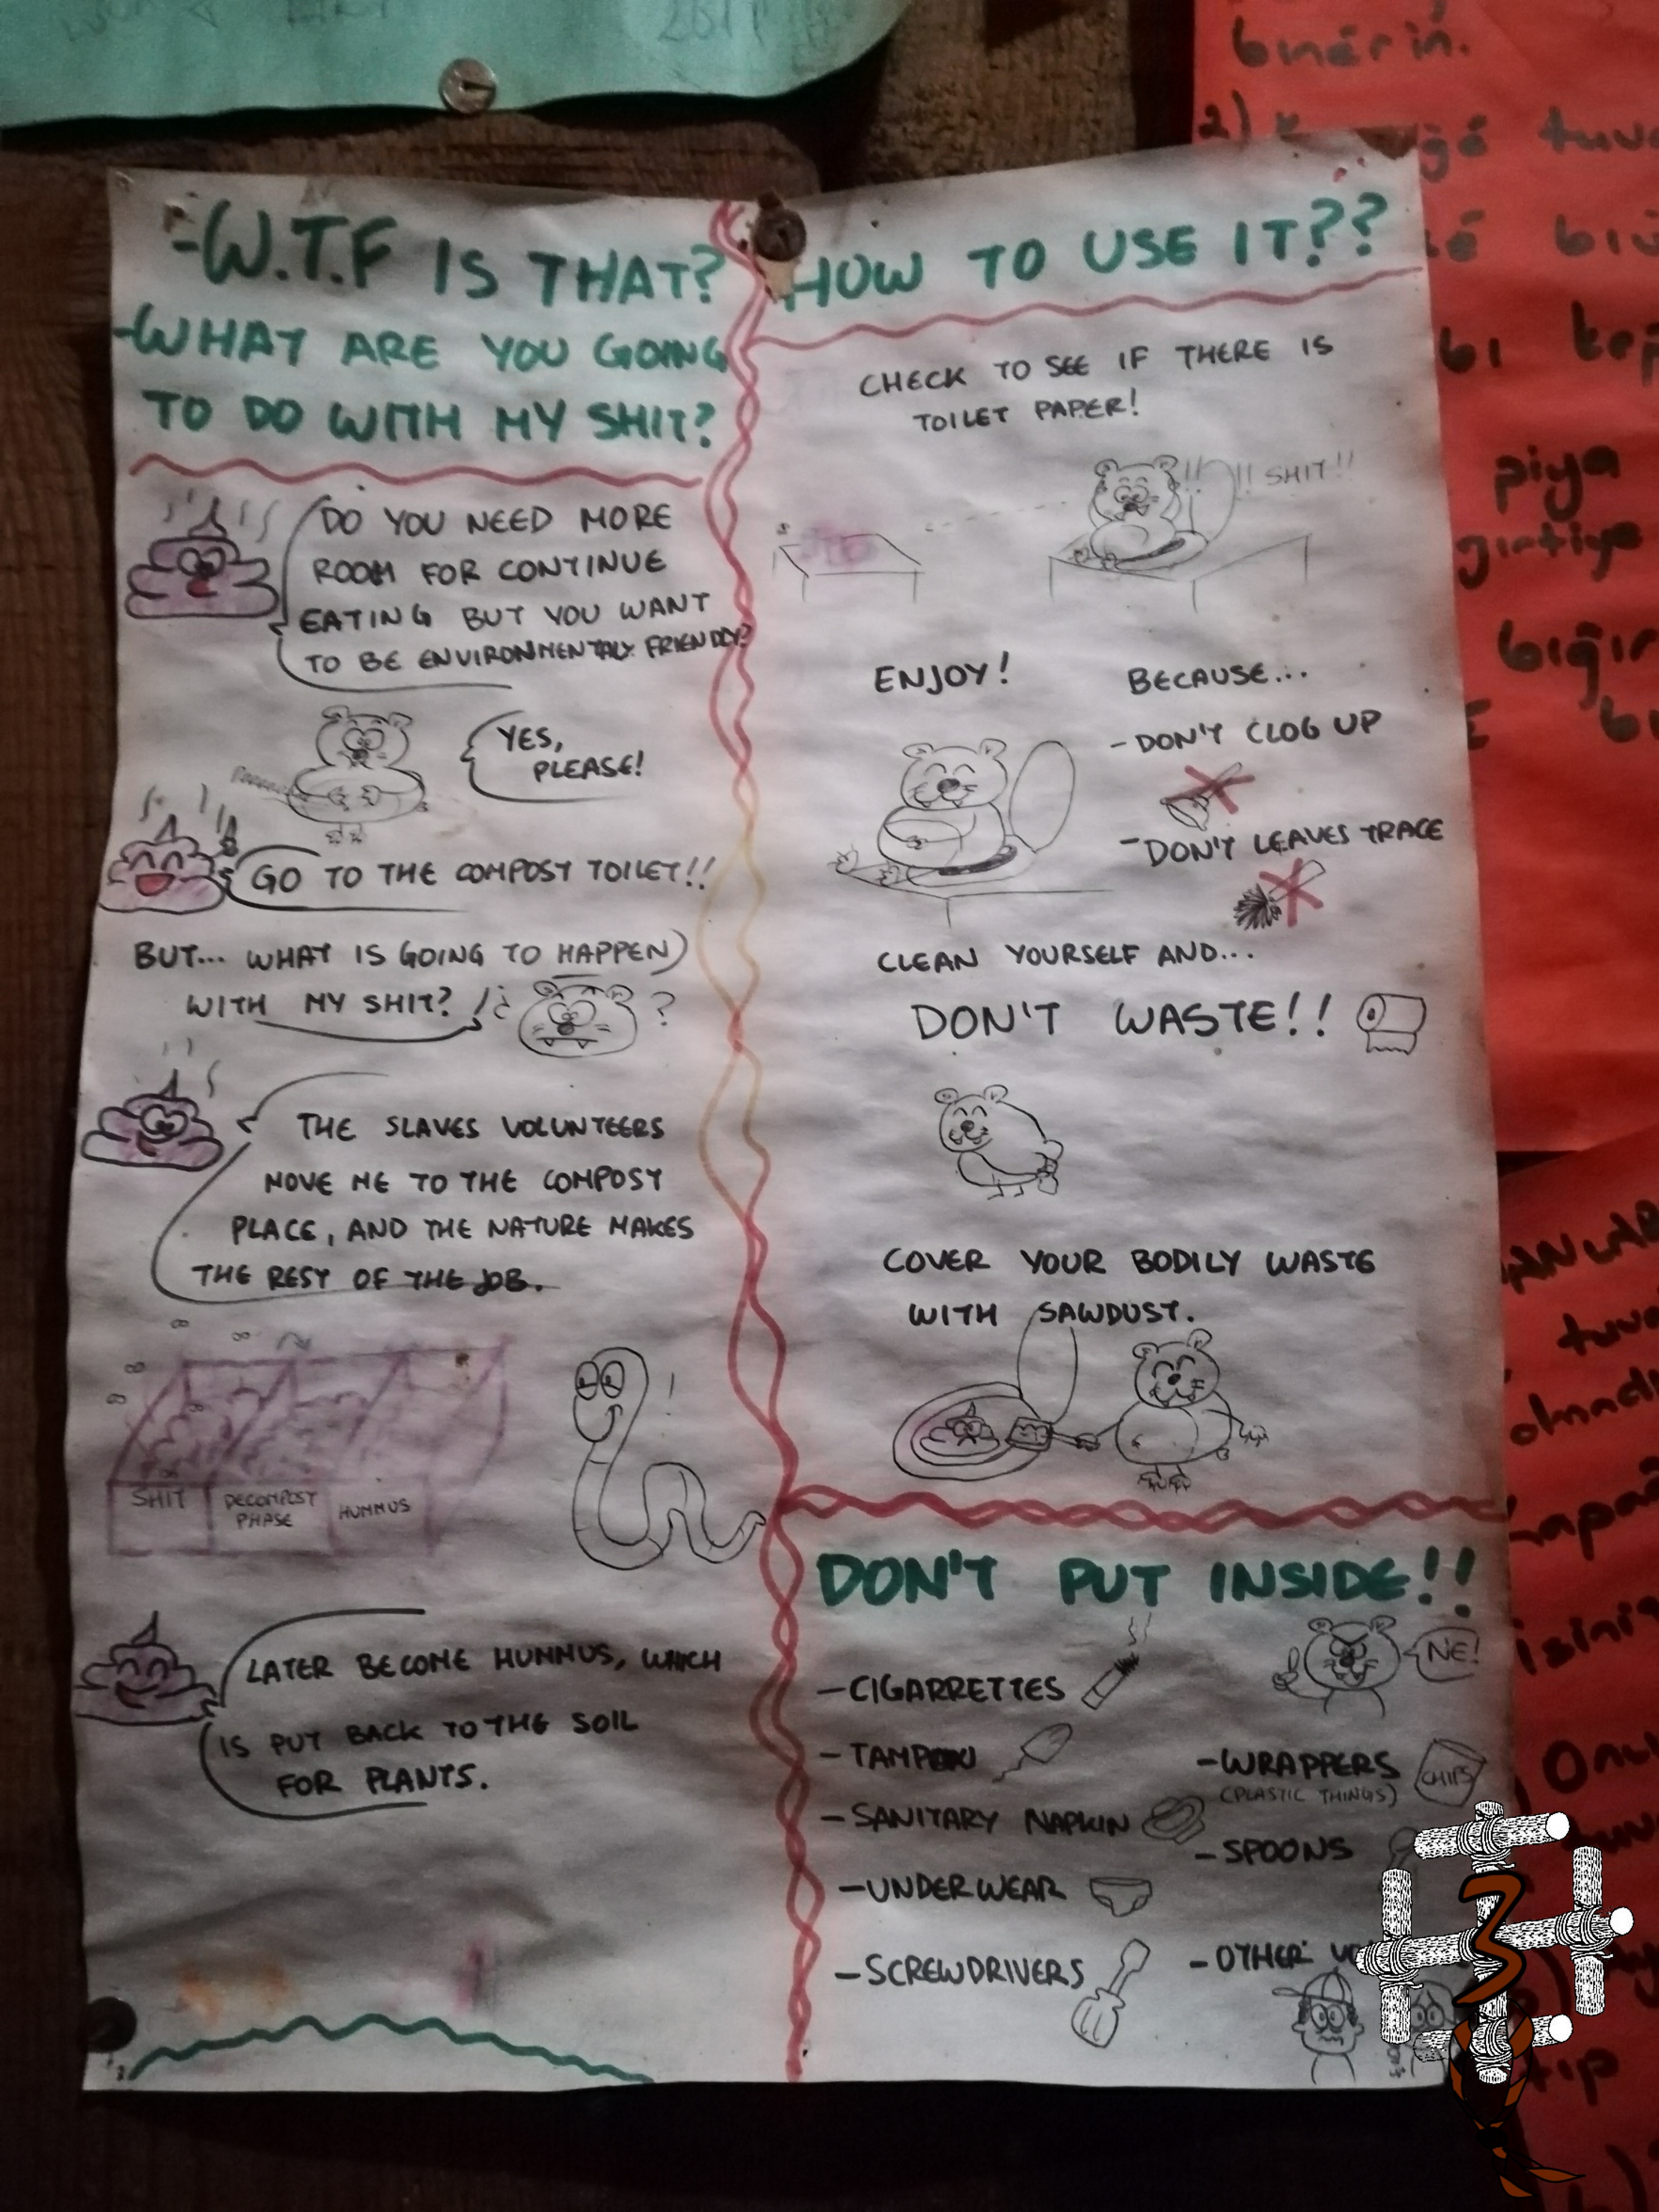 -W.T.F IS THAT?
-WHAT ARE YOU GOING
TO DO WITH MY SHIT?
DO YOU NEED MORE
ROOM FOR CONTINUE
EATING BUT YOU WANT
TO BE ENVIRONMENTALY FRIENDLY?
YES,
PLEASE!
GO TO THE COMPOST TOILET!!
BUT... WHAT IS GOING TO HAPPEN
WITH MY SHIT?
!¿ ?
THE SLAVES VOLUNTEERS
MOVE ME TO THE COMPOST
PLACE, AND THE NATURE MAKES
THE REST OF THE JOB.
!
SHIT
DECOMPOST
PHASE
HUMMUS
LATER BECOME HUMMUS, WHICH
IS PUT BACK TO THE SOIL
FOR PLANTS.
HOW TO USE IT??
CHECK TO SEE IF THERE IS
TOILET PAPER!
!! !! SHIT!!
ENJOY!
BECAUSE...
- DON'T CLOG UP
- DON'T LEAVES TRACE
CLEAN YOURSELF AND...
DON'T WASTE!!
COVER YOUR BODILY WASTE
WITH SAWDUST.
DON'T PUT INSIDE!!
NE!
- CIGARRETTES
- TAMPON
- SANITARY NAPKIN
- UNDERWEAR
- SCREWDRIVERS
- WRAPPERS
(PLASTIC THINGS)
CHIPS
- SPOONS
- OTHER
bınêrin.
2)
tuva
bı
piya
girtiye
3